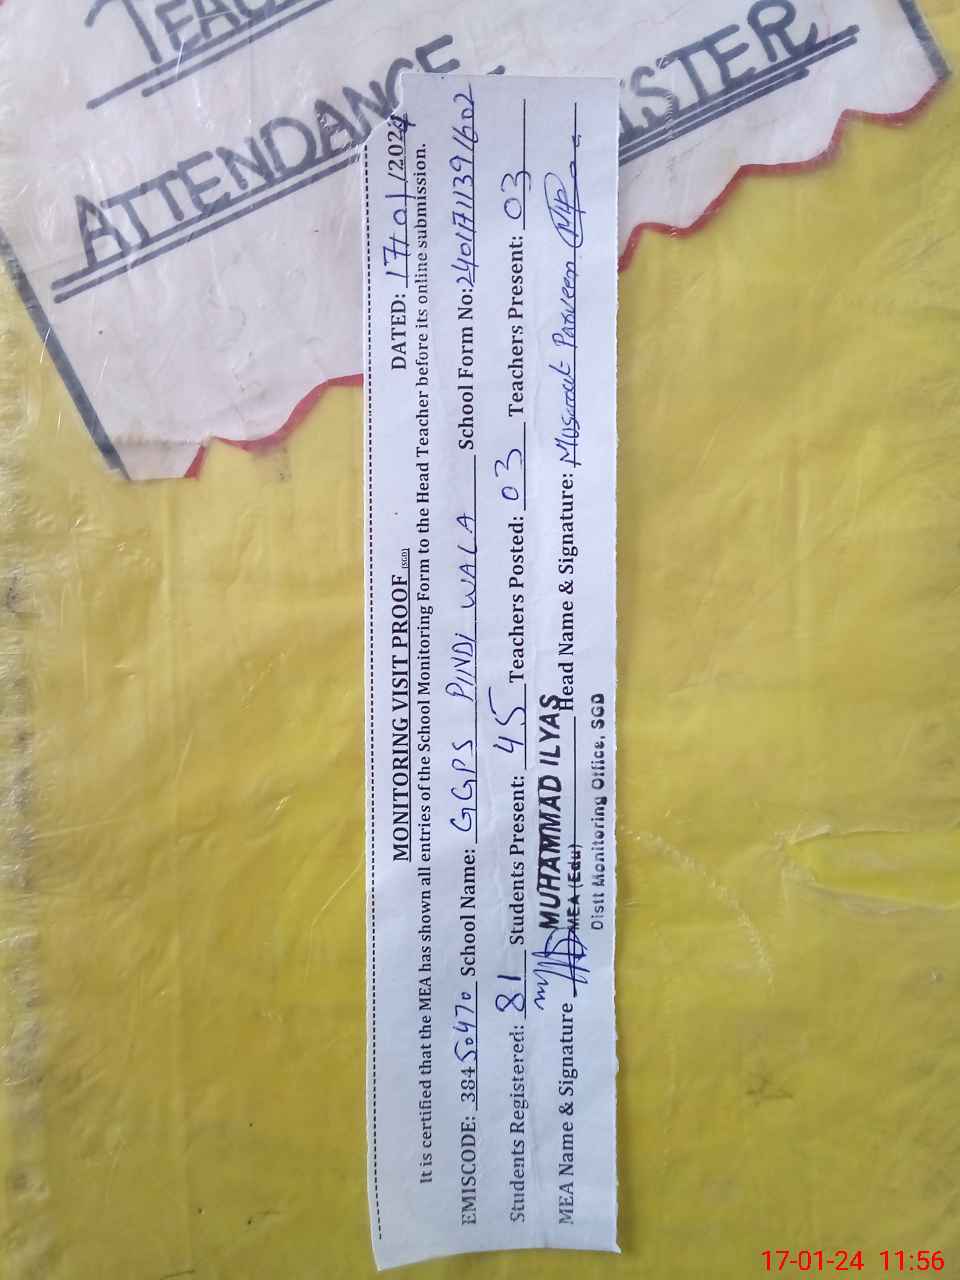 ATTENDANCE
MONITORING VISIT PROOF (SGD) DATED: 17-01/2024
It is certified that the MEA has shown all entries of the School Monitoring Form to the Head Teacher before its online submission.
EMISCODE: 38450470 School Name: GGPS PINDI WALA School Form No: 2401711391602
Students Registered: 81 Students Present: 45 Teachers Posted: 03 Teachers Present: 03
MEA Name & Signature MUHAMMAD ILYAS Head Name & Signature: Musarrat Parveen
MEA (Edu)
Distt Monitoring Office, SGD
17-01-24 11:56